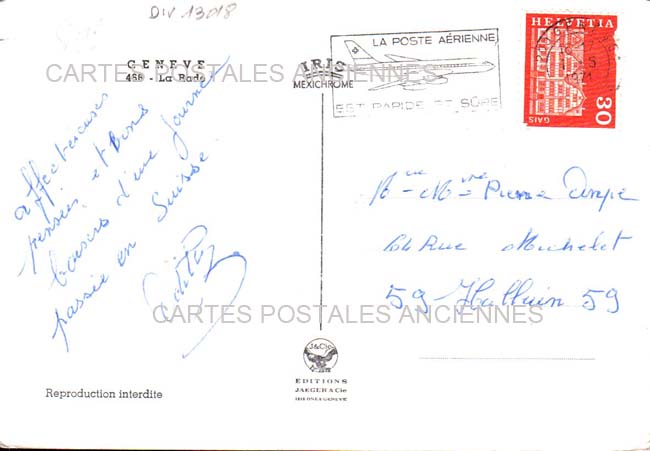 DIV 13018
GENEVE
456 - La Rade
IRIS
MEXICHROME
LA POSTE AÉRIENNE
EST RAPIDE ET SÛRE
HELVETIA
1971
GAIS
30
CARTES POSTALES ANCIENNES
affectueuses
pensées et bons
baisers d'une journée
passée en Suisse
Mr et Mme Pierre
64 Rue Michelet
59 Halluin 59
CARTES POSTALES ANCIENNES
J&Cie
GENÈVE
EDITIONS
JAEGER & Cie
1211 ONEX GENEVE
Reproduction interdite